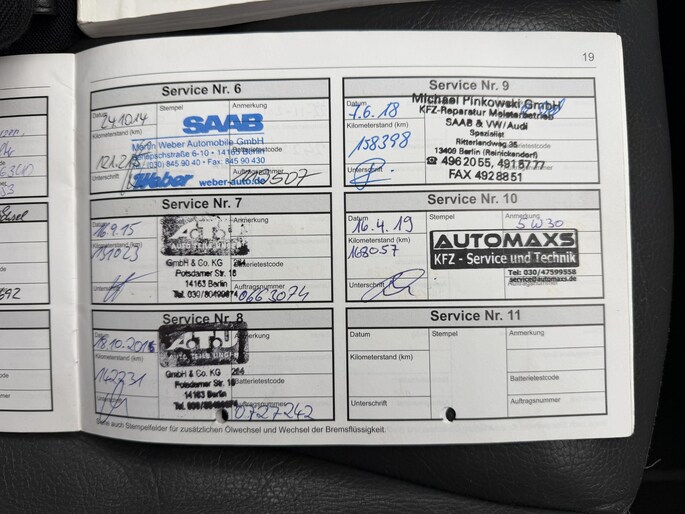 19
Service Nr. 6
Datum
24.10.14
Stempel
Anmerkung
Kilometerstand (km)
SAAB
Martin Weber Automobile GmbH
6-10 • 14165 Berlin
(030) 845 90 40 • Fax: 845 90 430
Unterschrift
Weber
weber-auto.de
Auftragsnummer
Service Nr. 7
Datum
16.9.15
Stempel
Anmerkung
Kilometerstand (km)
131023
A.T.U
AUTO TEILE UNGER
GmbH & Co. KG
Potsdamer Str. 16
14163 Berlin
Batterietestcode
Unterschrift
Auftragsnummer
0663074
Service Nr. 8
Datum
18.10.2016
Stempel
Anmerkung
A.T.U
AUTO TEILE UNGER
GmbH & Co. KG
Potsdamer Str. 16
14163 Berlin
142231
Batterietestcode
Unterschrift
Auftragsnummer
0727242
Service Nr. 9
Datum
7.6.18
Michael Pinkowski GmbH
KFZ-Reparatur Meisterbetrieb
SAAB & VW/Audi
Spezialist
Ritterlandweg 35
13409 Berlin (Reinickendorf)
☎ 496 20 55, 491 57 77
FAX 492 88 51
Kilometerstand (km)
158398
Unterschrift
Service Nr. 10
Datum
16.4.19
Stempel
Anmerkung
5W30
Kilometerstand (km)
168057
AUTOMAXS
KFZ - Service und Technik
Tel: 030/47599558
service@automaxs.de
Unterschrift
Service Nr. 11
Datum
Stempel
Anmerkung
Kilometerstand (km)
Batterietestcode
Unterschrift
Auftragsnummer
Siehe auch Stempelfelder für zusätzlichen Ölwechsel und Wechsel der Bremsflüssigkeit.